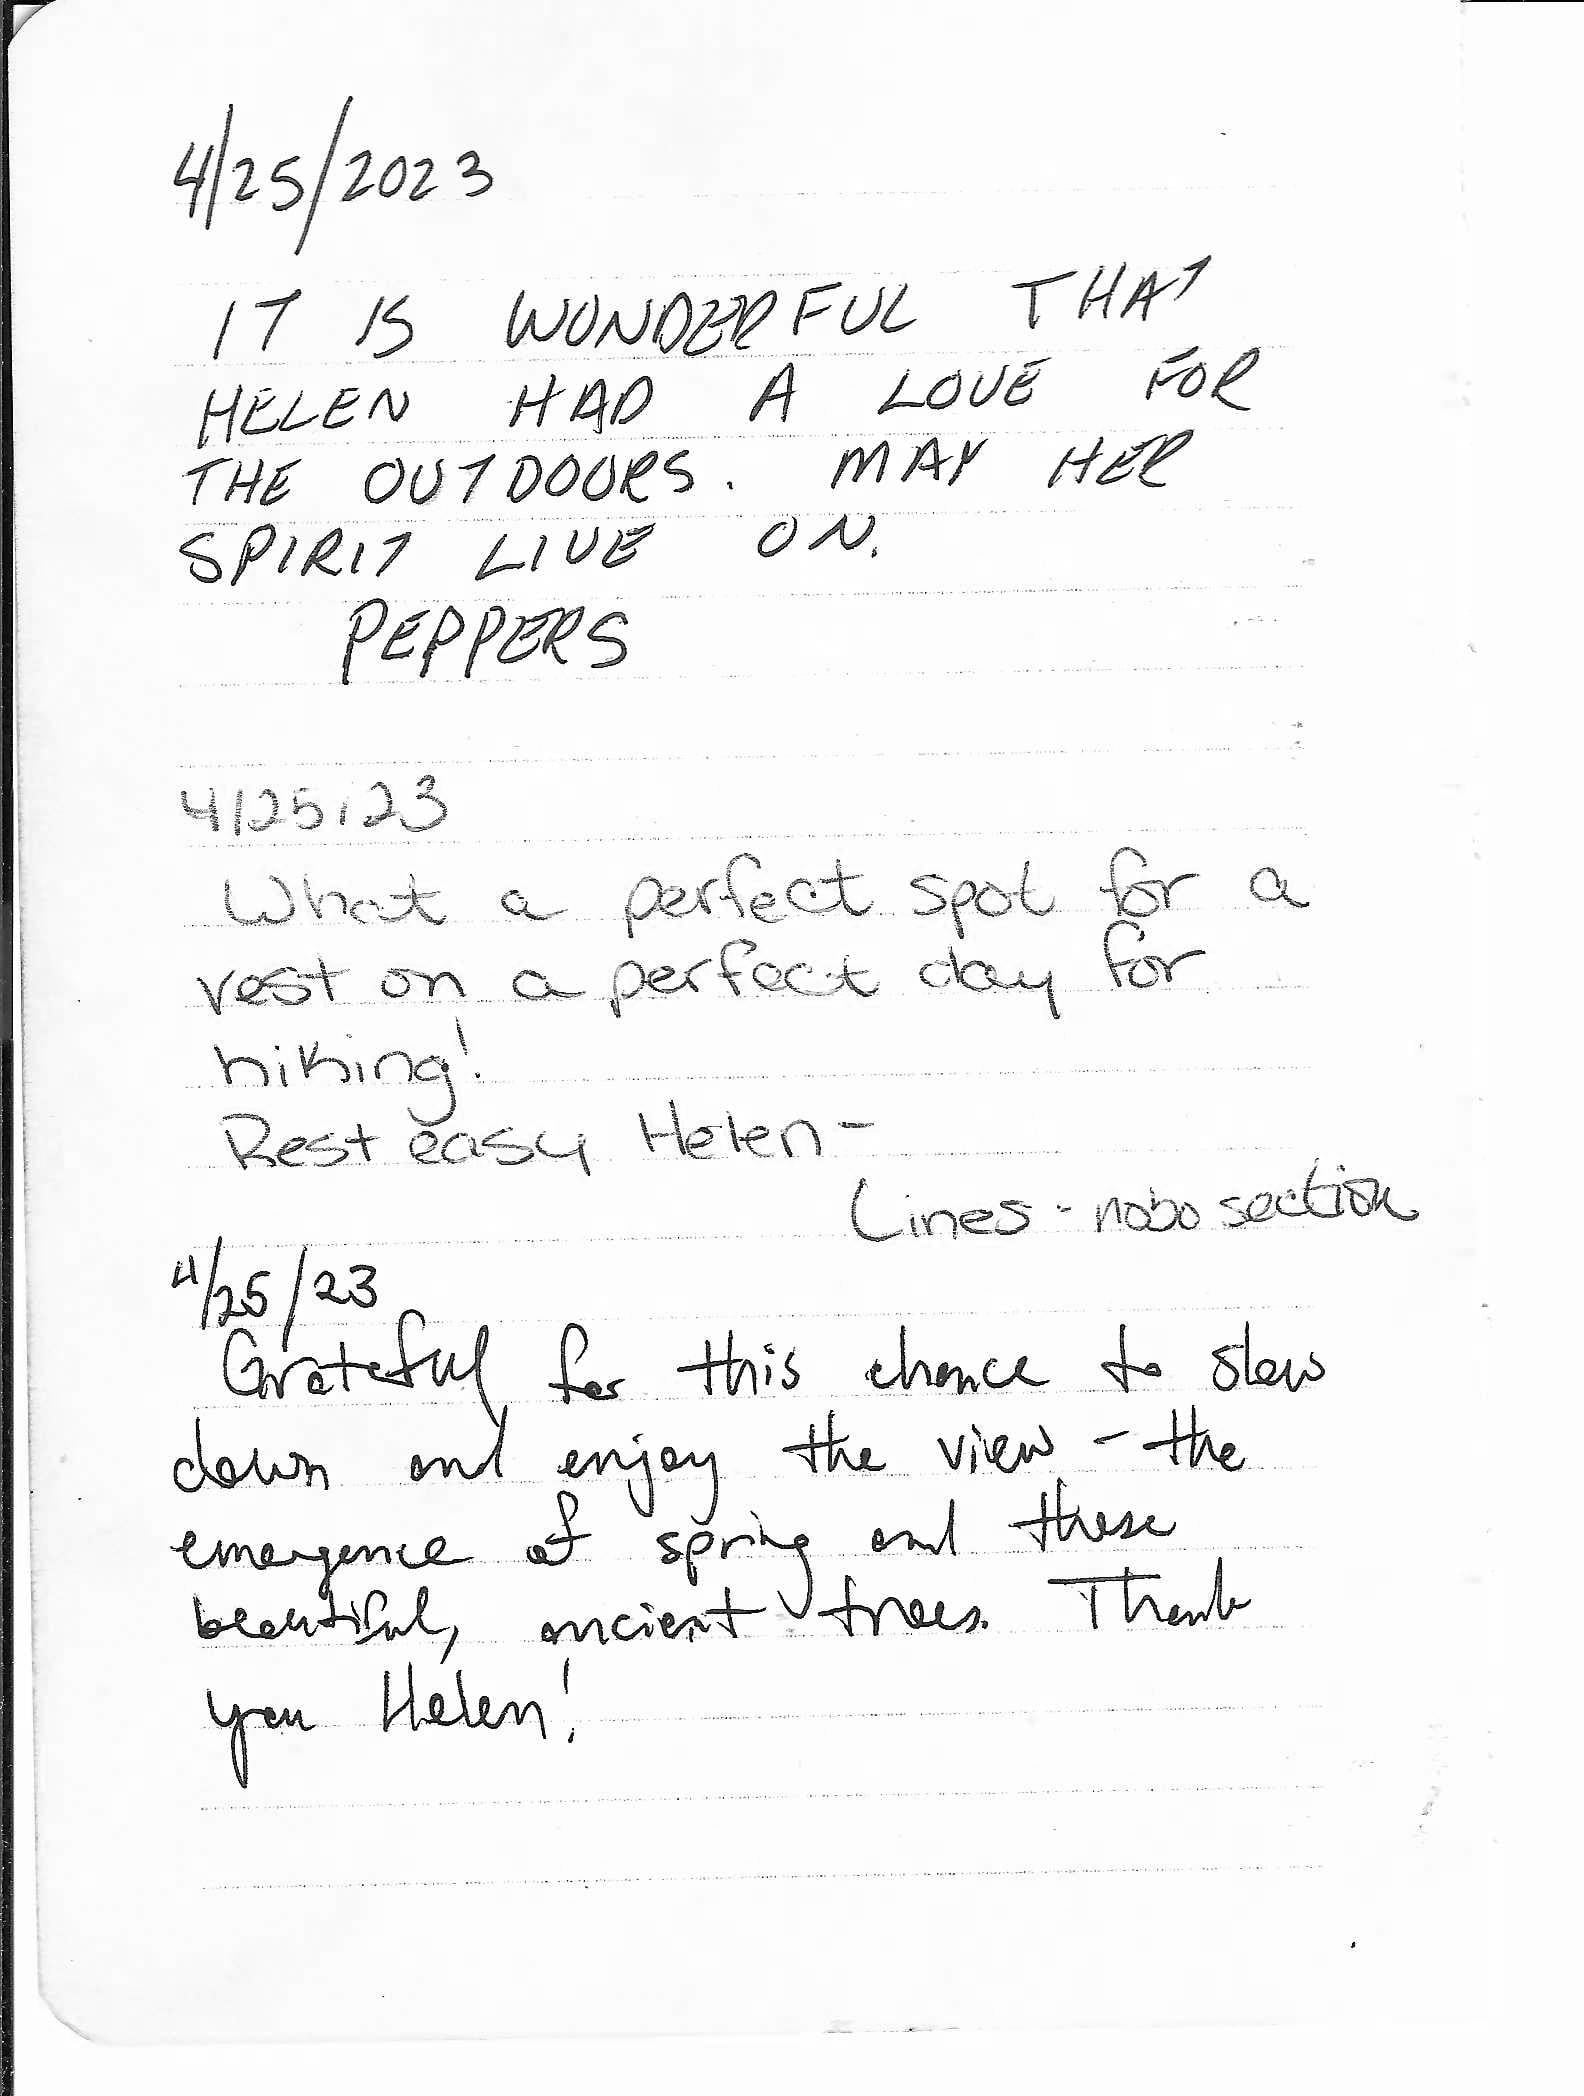 4/25/2023
IT IS WONDERFUL THAT
HELEN HAD A LOVE FOR
THE OUTDOORS. MAY HER
SPIRIT LIVE ON.
PEPPERS
4/25/23
What a perfect spot for a
rest on a perfect day for
hiking!
Rest easy Helen-
Lines - nobo section
4/25/23
Grateful for this chance to slow
down and enjoy the view - the
emergence of spring and these
beautiful, ancient trees. Thank
you Helen!